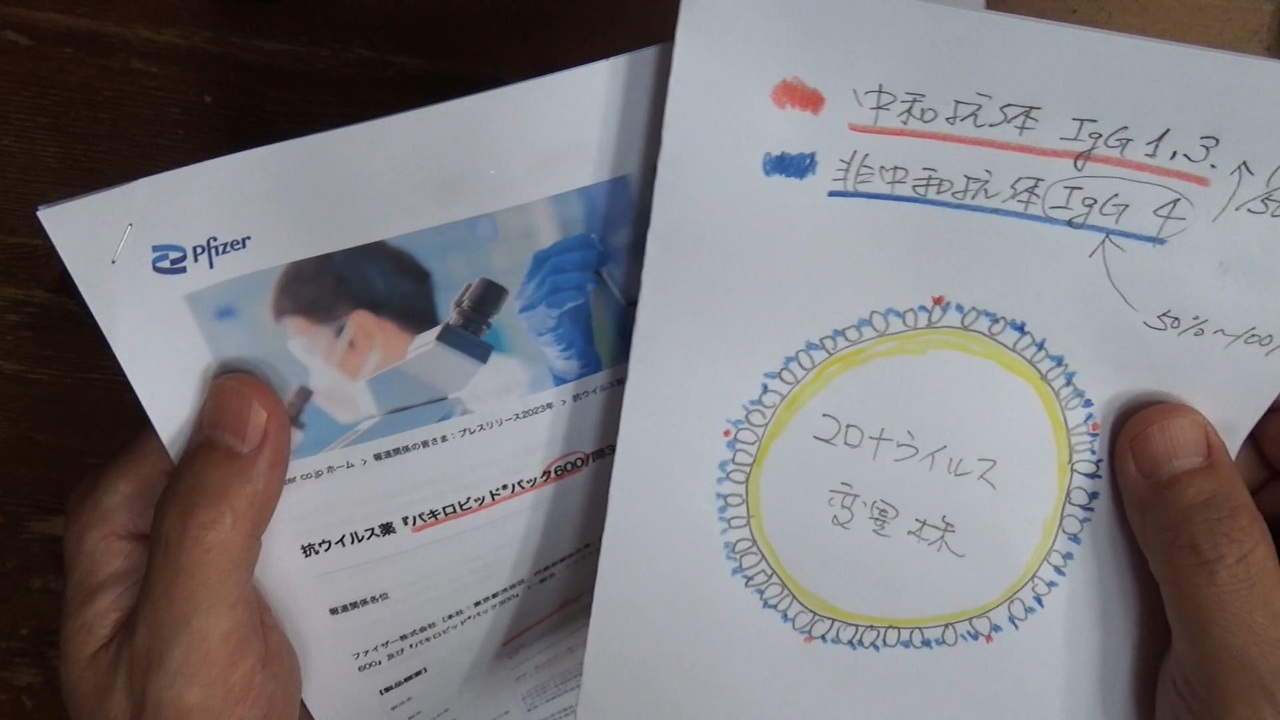 Pfizer
ホーム > 報道関係の皆さま：プレスリリース2023年 > 抗ウイルス薬
抗ウイルス薬『パキロビッド®パック600/同3
報道関係各位
ファイザー株式会社（本社：東京都渋谷区、
600』及び『パキロビッド®パック300』
【製品概要】
中和抗体 IgG 1, 3.
非中和抗体 IgG 4
50%~100
コロナウイルス
変異株